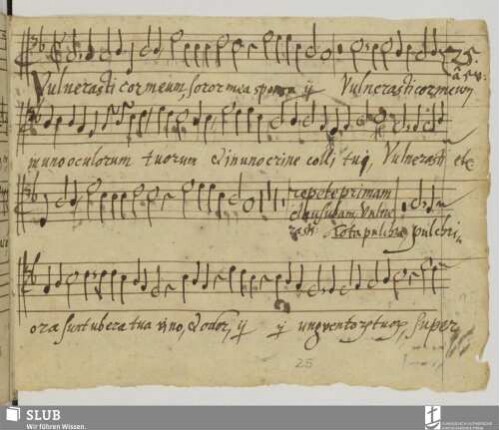 25.
à 5 v:
Vulnerasti cor meum, soror mea sponsa ij Vulnerasti cor meum
in uno oculorum tuorum & in uno crine colli tui, Vulnerasti etc
repete primam
clausulam. Vulne
rasti Tota pulchra pulchri
ora sunt ubera tua vino, & odor, ij ij unguentorum tuorum, super
25
SLUB
Wir führen Wissen.